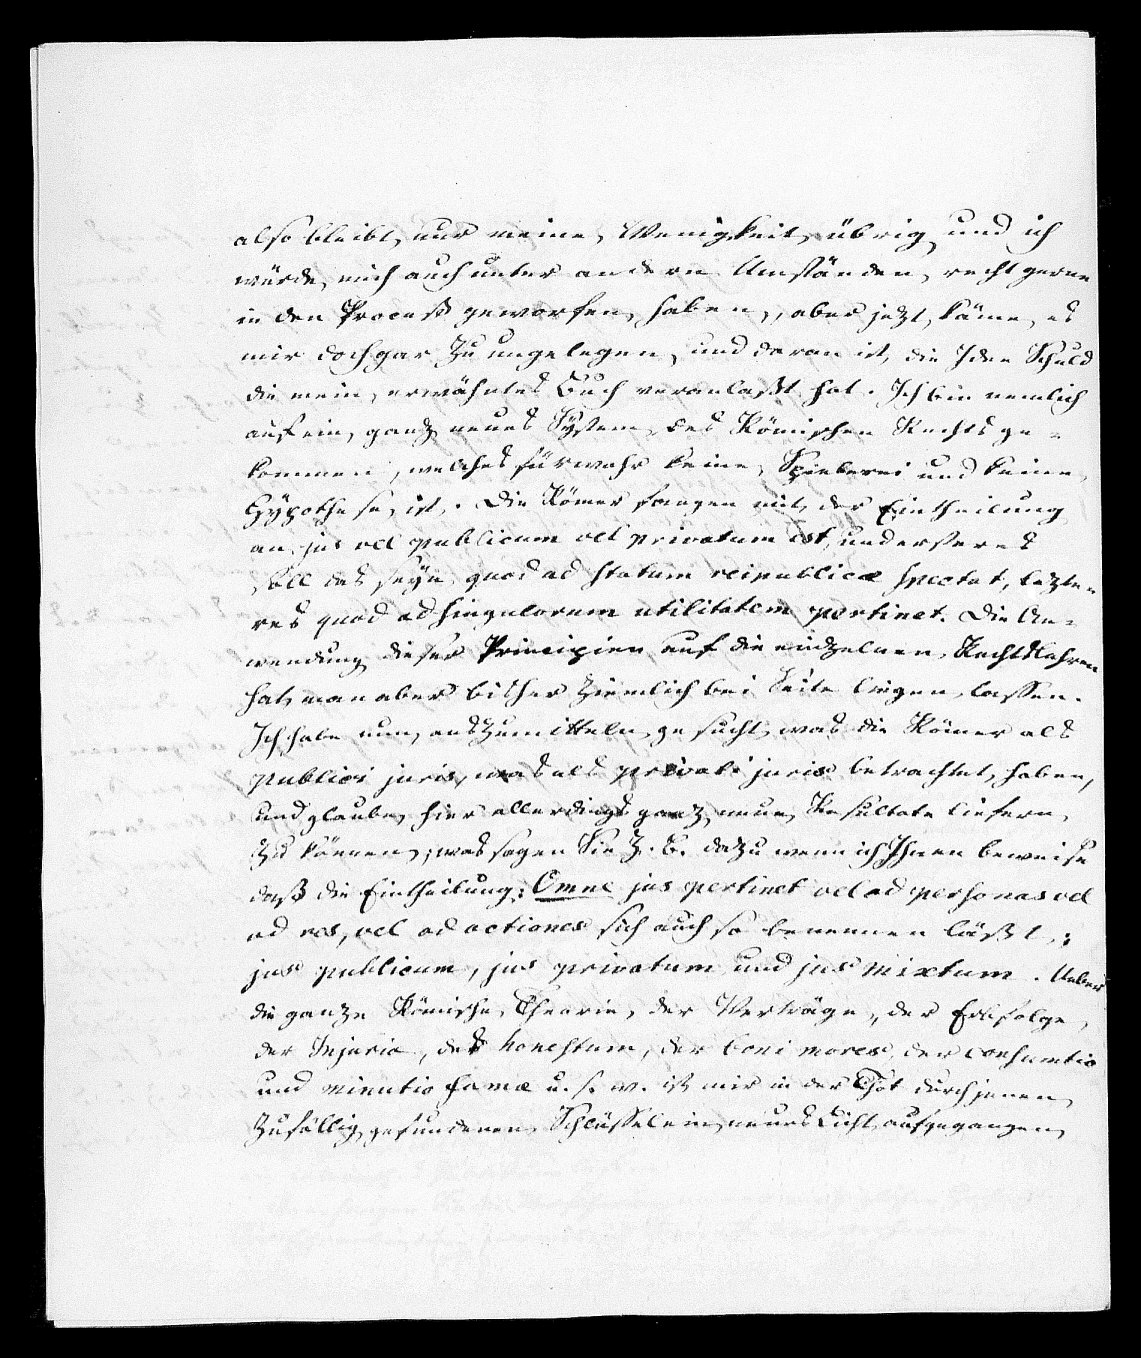 also bleibt nur meine Wenigkeit übrig und ich
würde mich auch unter andern Umständen recht gerne
in den Proceß geworfen haben, aber jetzt käme es
mir doch gar zu ungelegen, und daran ist die Idee Schuld
die mein erwähntes Buch veranlaßt hat. Ich bin nemlich
auf ein ganz neues System des Römischen Rechts ge-
kommen, welches fürwahr keine Spielerei und keine
Hypothese ist. Die Römer fangen mit der Eintheilung
an, jus vel publicum vel privatum est, und ersteres
soll das seyn quod ad statum reipublicæ spectat, letzte-
res quod ad singulorum utilitatem pertinet. Die An-
wendung dieser Principien auf die einzelnen Rechtslehren
hat man aber bisher ziemlich bei Seite liegen lassen.
Ich habe nun auszumitteln gesucht was die Römer als
publici juris, was als privati juris betrachtet haben,
und glaube hier allerdings ganz neue Resultate liefern
zu können; was sagen Sie z. B. dazu wenn ich Ihnen beweise
daß die Eintheilung: Omne jus pertinet vel ad personas vel
ad res, vel ad actiones sich auch so benennen läßt:
jus publicum, jus privatum und jus mixtum. Ueber
die ganze Römische Theorie der Verträge, der Erbfolge,
der Injuria, des honestum, der boni mores, der consumtio
und minutio famæ u. s. w. ist mir in der That durch jenen
zufällig gefundenen Schlüssel ein neues Licht aufgegangen